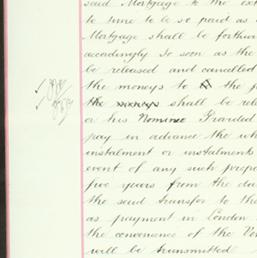 said Mortgage to the ext
to time to be so paid as
Mortgage shall be forthwi
accordingly So soon as the
be released and cancelled
the moneys to the p
the shall be rele
or his Nominee Provided
pay in advance the wh
instalment or instalments
event of any such prepa
five years from the da
the said transfer to the
as payment in London
the convenience of the Ven
will be transmitted